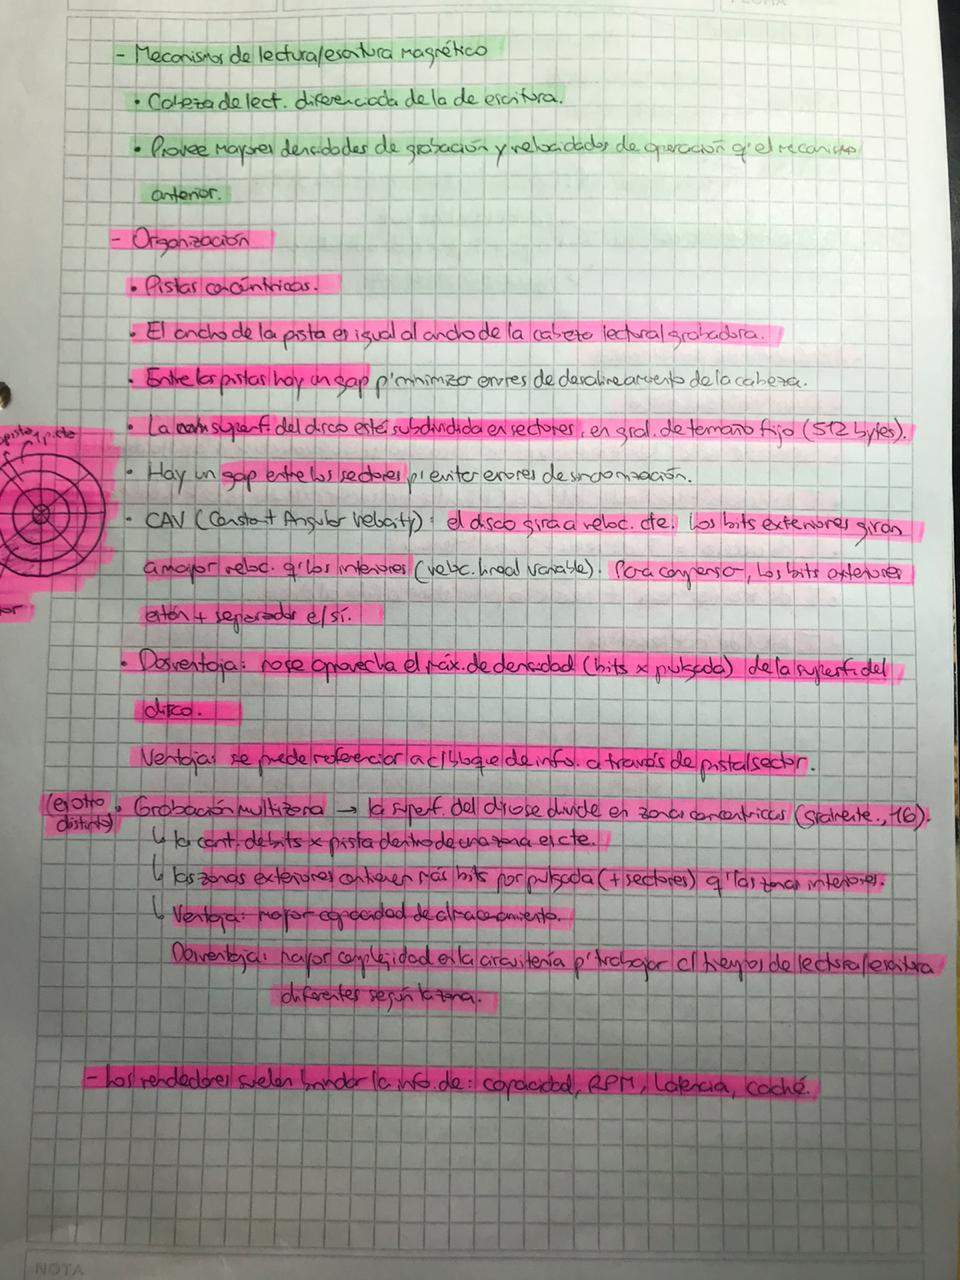 FECHA
- Mecanismos de lectura/escritura magnético
• Cabeza de lect. diferenciada de la de escritura.
• Provee mayores densidades de grabación y velocidades de operación q' el mecanismo
anterior.
- Organización
• Pistas concéntricas.
• El ancho de la pista es igual al ancho de la cabeza lectura/grabadora.
• Entre las pistas hay un gap p' minimizar errores de desalineamiento de la cabeza.
• La superf. del disco está subdividida en sectores, en gral. de tamaño fijo (512 bytes).
1 pista
• Hay un gap entre los sectores p' evitar errores de sincronización.
• CAV (Constant Angular Velocity): el disco gira a veloc. cte. Los bits exteriores giran
a mayor veloc. q' los interiores (veloc. lineal variable). Para compensar, los bits exteriores
están + separados e/sí.
• Desventaja: no se aprovecha el máx. de densidad (bits x pulgada) de la superf. del
disco.
Ventaja: se puede referenciar a c/bloque de info. a través de pista/sector.
(ej otro
distinto)
• Grabación multizona → la superf. del disco se divide en zonas concéntricas (gralmente., 16).
↳ la cant. de bits x pista dentro de una zona es cte.
↳ las zonas exteriores contienen más bits por pulgada (+ sectores) q' las zonas interiores.
↳ Ventaja: mayor capacidad de almacenamiento.
Desventaja: mayor complejidad en la circuitería p' trabajar c/ tiempos de lectura/escritura
diferentes según la zona.
- Los vendedores suelen brindar la info. de: capacidad, RPM, Latencia, caché.
NOTA